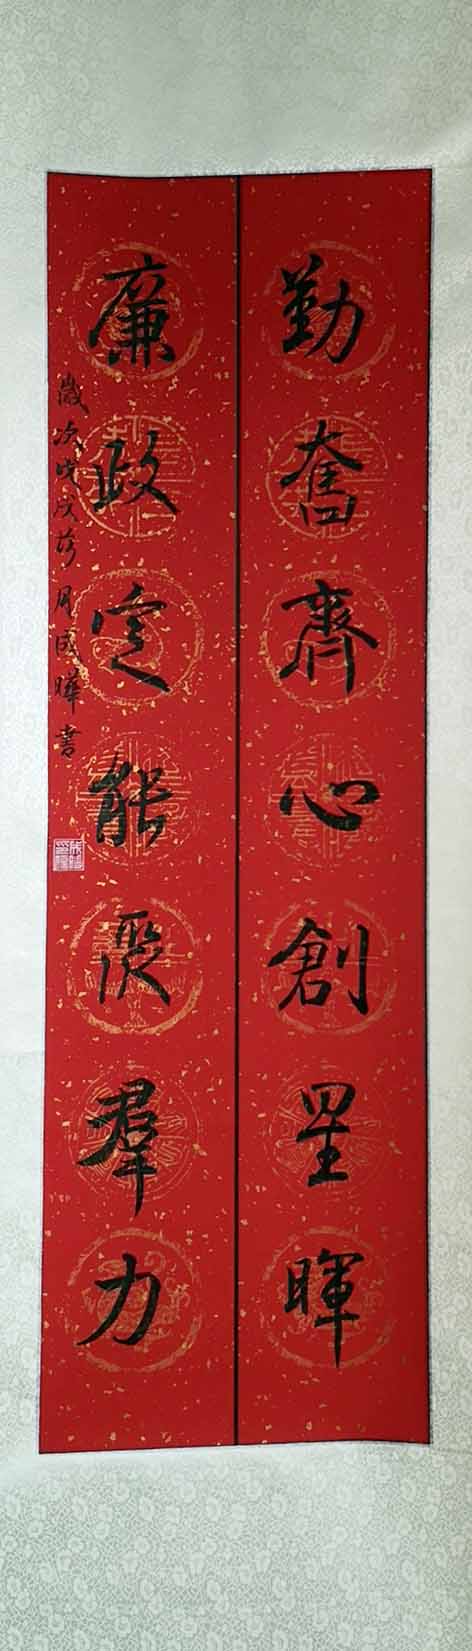 勤奮齊心創星暉
廉政定能聚羣力
歲次戊戌 月成曄書